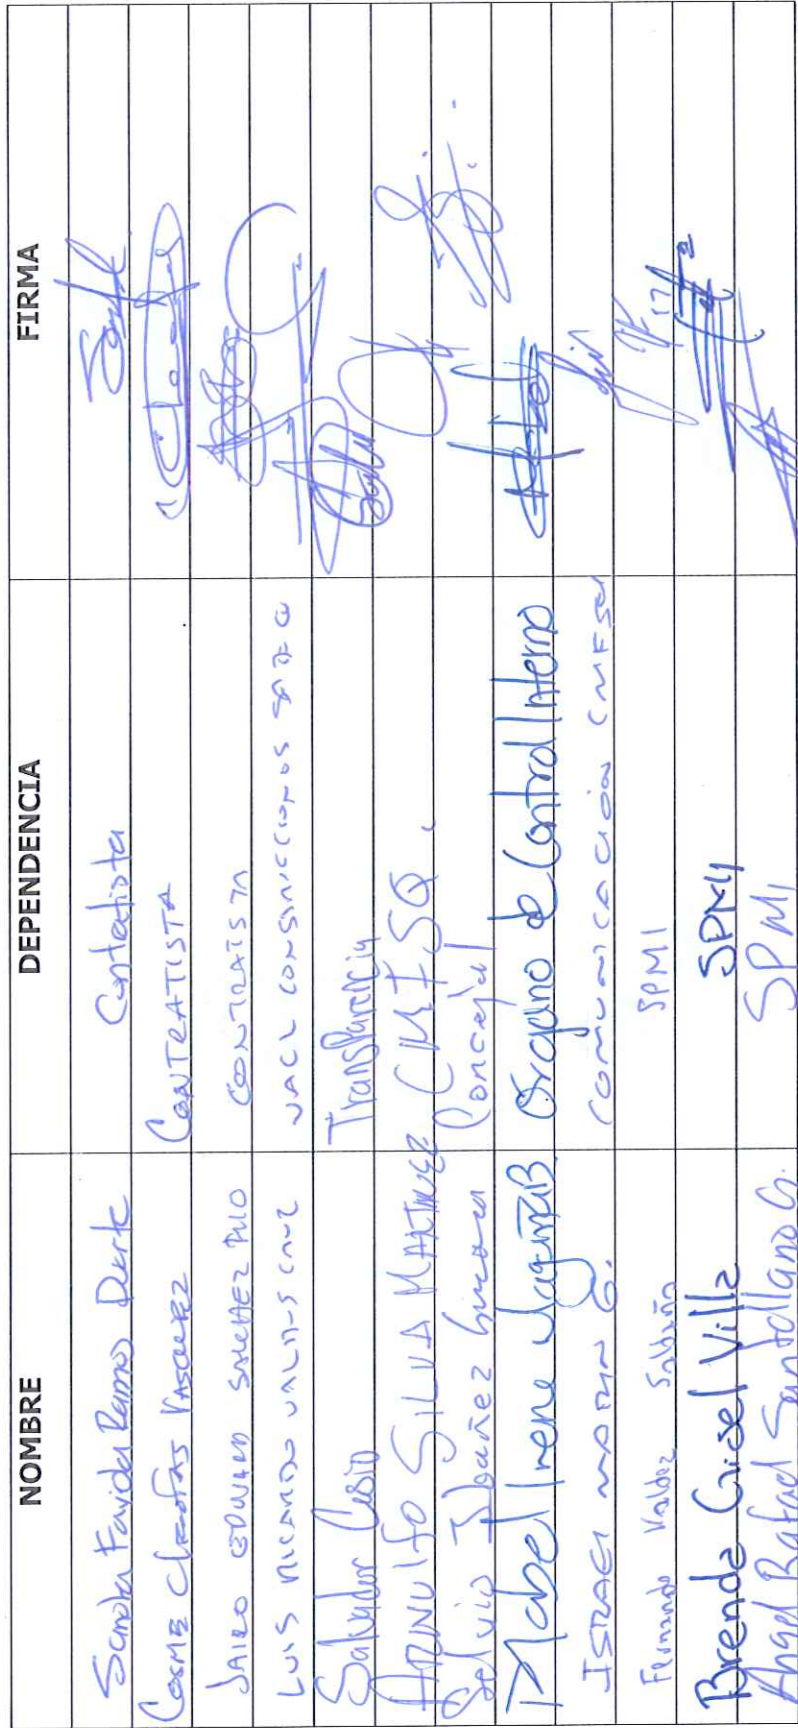 NOMBRE DEPENDENCIA FIRMA
Sandra Farida Ramos Duarte Contratista
COSME CLEOFAS VASQUEZ CONTRATISTA
JAIRO EDUARDO SANCHEZ CONTRATISTA
LUIS RICARDO CRUZ VACL CONSTRUCCIONES
Salvador Transparencia
ARNULFO SILVA MARTINEZ CMFSQ.
Selvio Ibañez Concejal
Mabel Irene Organo de Control Interno
ISRAEL G. COMUNICACIÓN
Fernando Valdez SPMI
Brenda Gisel Villa SPMI
Angel Rafael Santellano G. SPMI